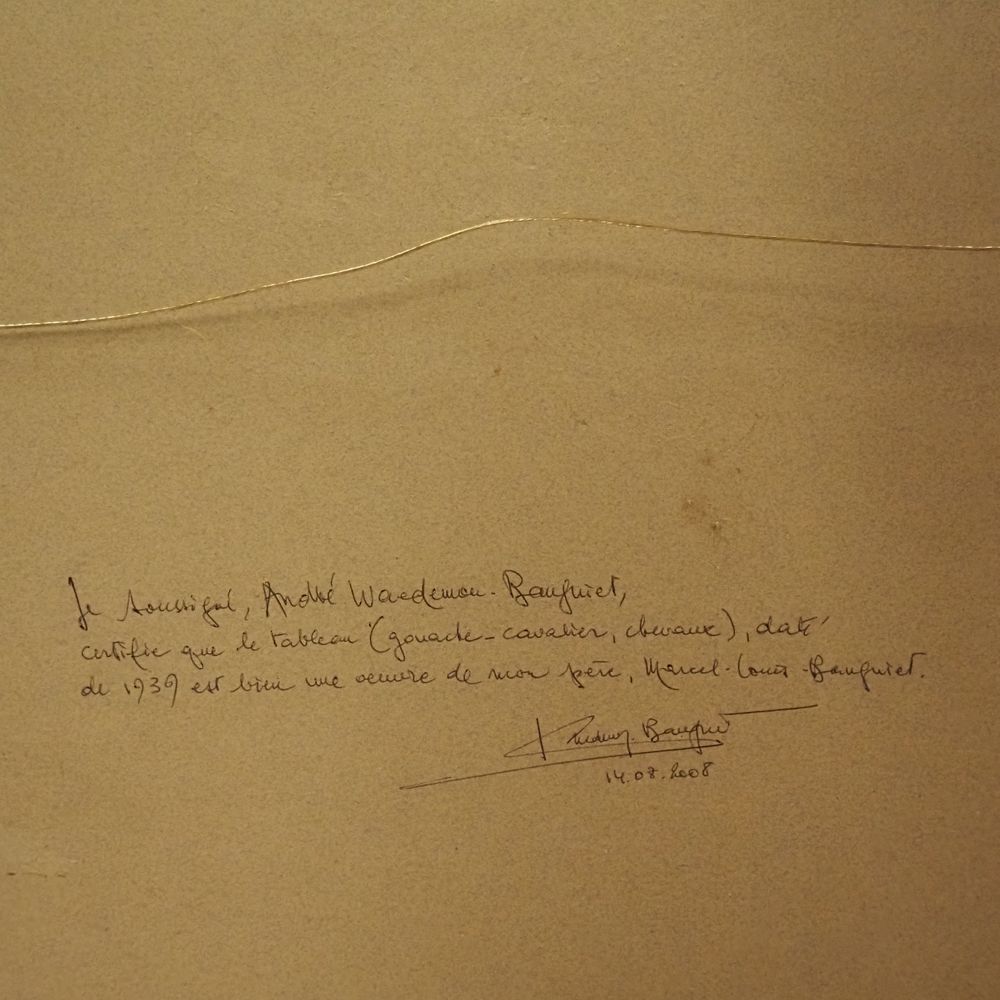 Je soussigné, André Waedemon-Baugniet,
certifie que le tableau (gouache-cavalier, chevaux), daté
de 1939 est bien une oeuvre de mon père, Marcel-Louis Baugniet.
Baugniet
14.08.2008